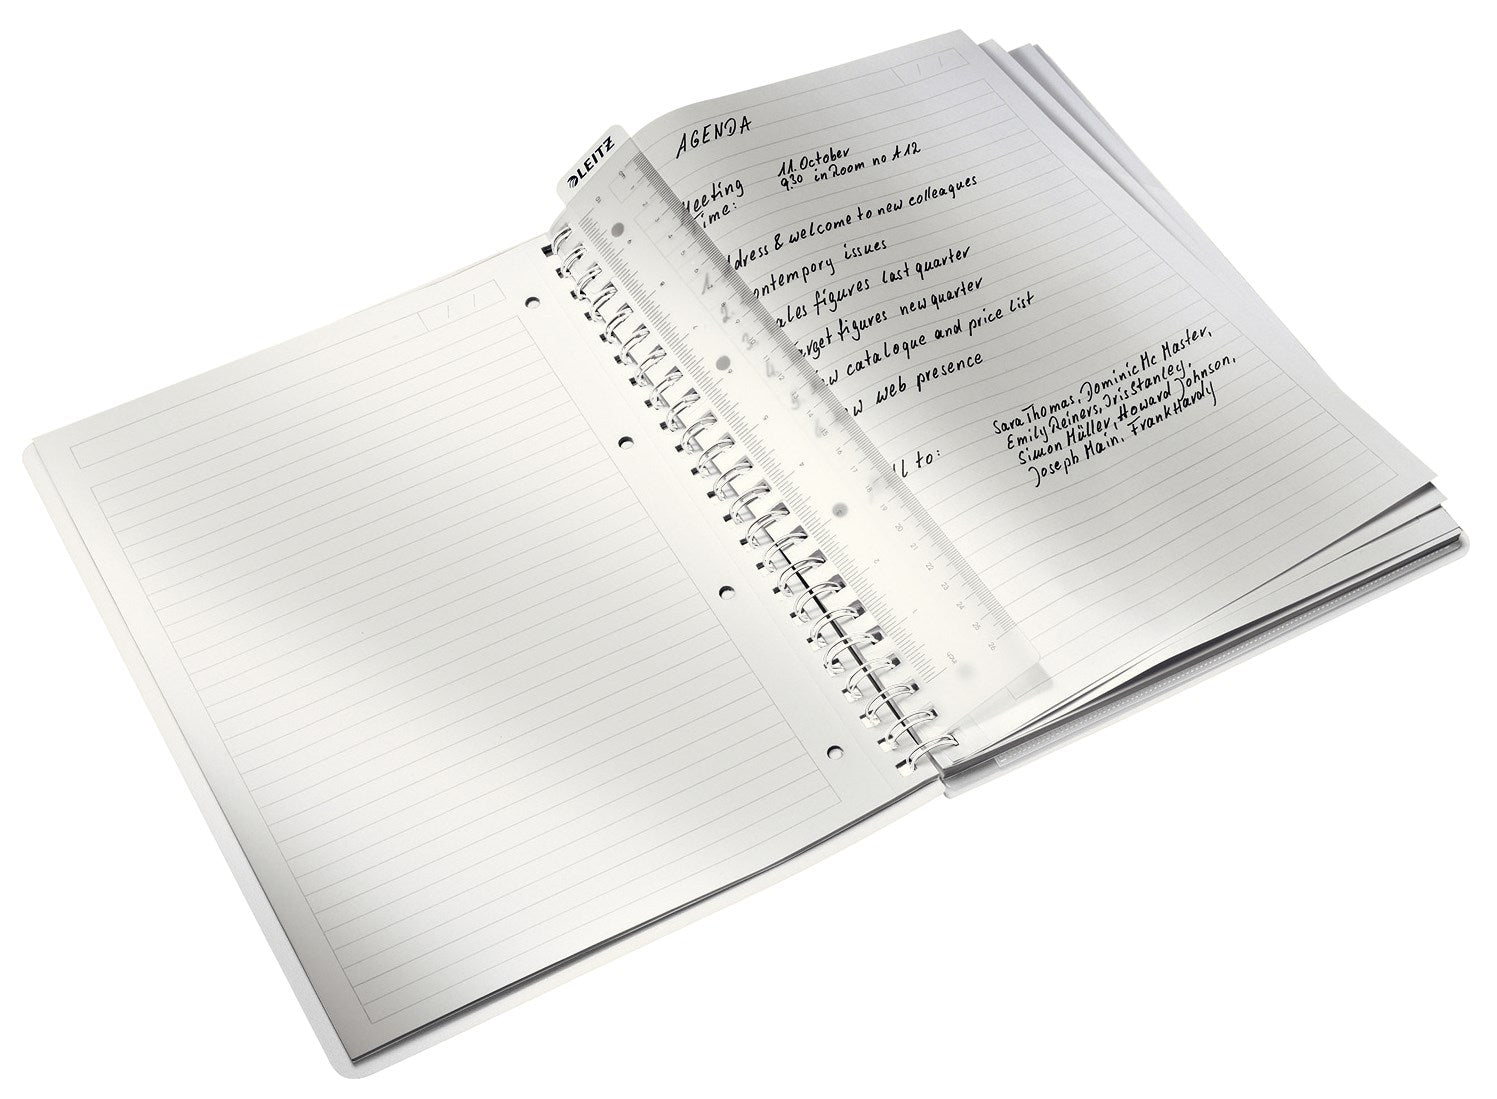 LEITZ
AGENDA
Meeting
Time:
11. October
9.30 in Room no A 12
1. ddress & welcome to new colleagues
2. ontempory issues
3. ales figures last quarter
4. arget figures new quarter
5. ew catalogue and price list
ew web presence
ll to:
Sara Thomas, Dominic Mc Master,
Emily Reiners, Iris Stanley,
Simon Müller, Howard Johnson,
Joseph Main, Frank Hardy